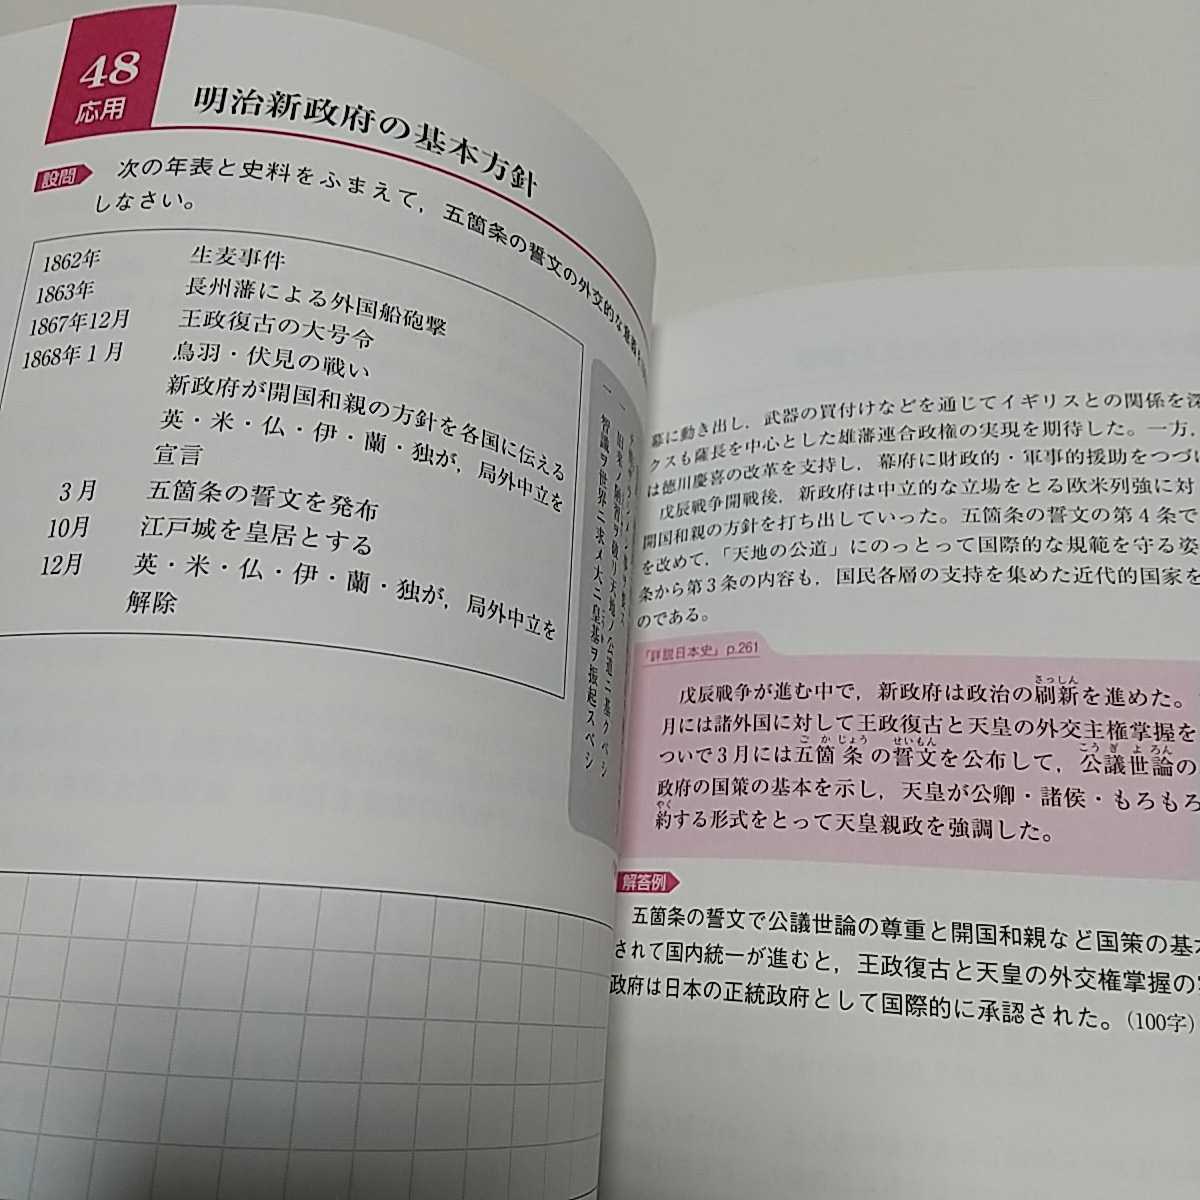 48
応用
明治新政府の基本方針
設問
次の年表と史料をふまえて，五箇条の誓文の外交的な意義
しなさい。
1862年 生麦事件
1863年 長州藩による外国船砲撃
1867年12月 王政復古の大号令
1868年1月 鳥羽・伏見の戦い
新政府が開国和親の方針を各国に伝える
英・米・仏・伊・蘭・独が，局外中立を
宣言
3月 五箇条の誓文を発布
10月 江戸城を皇居とする
12月 英・米・仏・伊・蘭・独が，局外中立を
解除
一 旧来ノ陋習ヲ破リ天地ノ公道ニ基クベシ
一 智識ヲ世界ニ求メ大ニ皇基ヲ振起スベシ
幕に動き出し，武器の買付けなどを通じてイギリスとの関係を深
クスも薩長を中心とした雄藩連合政権の実現を期待した。一方，
は徳川慶喜の改革を支持し，幕府に財政的・軍事的援助をつづけ
戊辰戦争開戦後，新政府は中立的な立場をとる欧米列強に対
開国和親の方針を打ち出していった。五箇条の誓文の第4条で
を改めて，「天地の公道」にのっとって国際的な規範を守る姿
条から第3条の内容も，国民各層の支持を集めた近代的国家を
のである。
『詳説日本史』p.261
戊辰戦争が進む中で，新政府は政治の刷新を進めた。
月には諸外国に対して王政復古と天皇の外交主権掌握を
ついで3月には五箇条の誓文を公布して，公議世論の
政府の国策の基本を示し，天皇が公卿・諸侯・もろもろ
約する形式をとって天皇親政を強調した。
解答例
五箇条の誓文で公議世論の尊重と開国和親など国策の基本
されて国内統一が進むと，王政復古と天皇の外交権掌握の
政府は日本の正統政府として国際的に承認された。（100字）